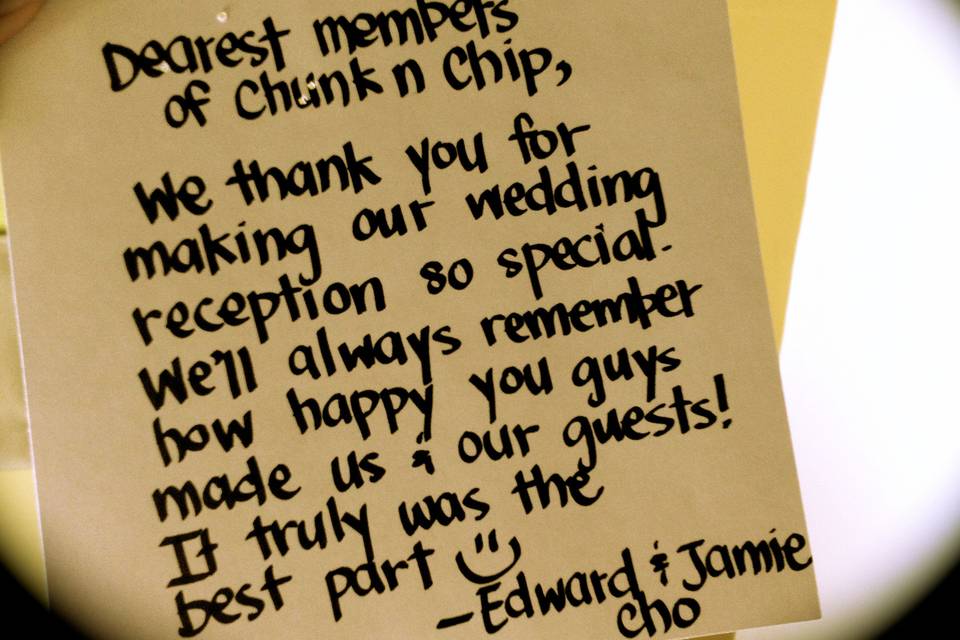 Dearest members
of Chunk n Chip,
We thank you for
making our wedding
reception so special.
We'll always remember
how happy you guys
made us & our guests!
It truly was the
best part
-Edward & Jamie
Cho